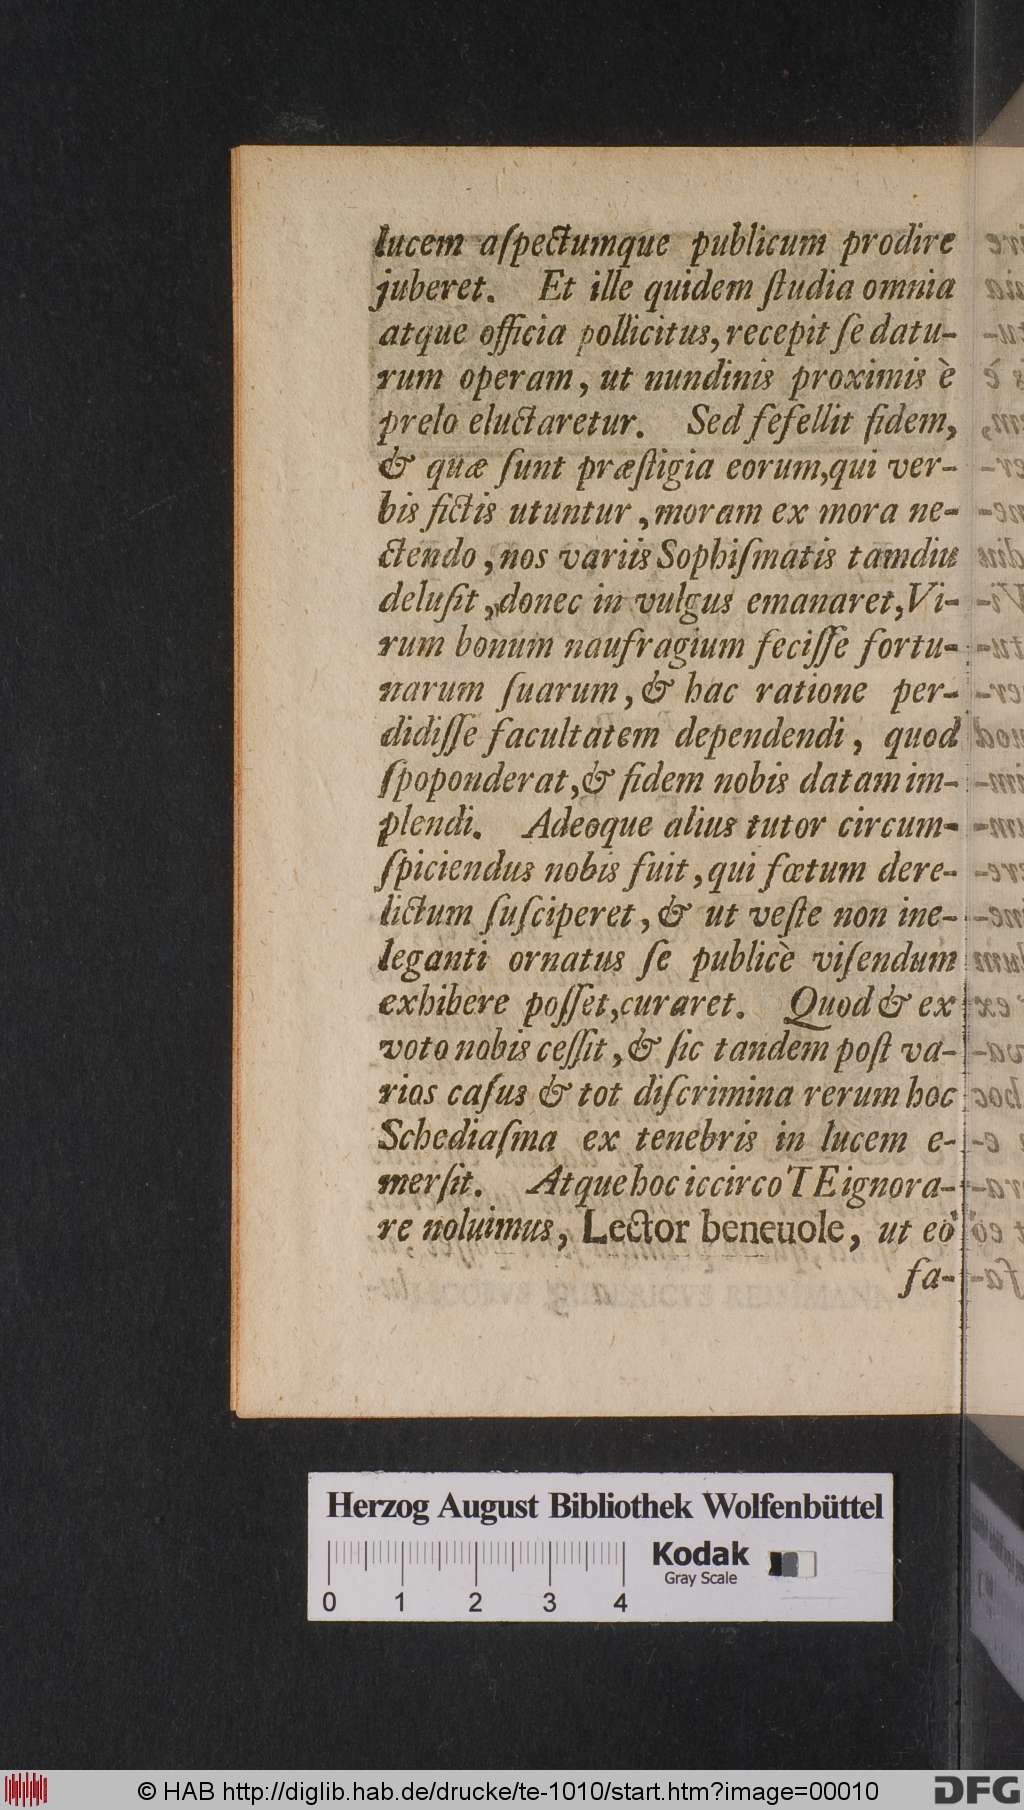 lucem aſpectumque publicum prodire
juberet. Et ille quidem ſtudia omnia
atque officia pollicitus, recepit ſe datu-
rum operam, ut nundinis proximis è
prelo eluctaretur. Sed fefellit fidem,
& quæ ſunt præſtigia eorum, qui ver-
bis fictis utuntur, moram ex mora ne-
ctendo, nos variis Sophiſmatis tamdiu
deluſit, donec in vulgus emanaret, Vi-
rum bonum naufragium feciſſe fortu-
narum ſuarum, & hac ratione per-
didiſſe facultatem dependendi, quod
ſpoponderat, & fidem nobis datam im-
plendi. Adeoque alius tutor circum-
ſpiciendus nobis fuit, qui fœtum dere-
lictum ſuſciperet, & ut veſte non ine-
leganti ornatus ſe publicè viſendum
exhibere poſſet, curaret. Quod & ex
voto nobis ceſſit, & ſic tandem poſt va-
rios caſus & tot diſcrimina rerum hoc
Schediaſma ex tenebris in lucem e-
merſit. Atque hoc iccirco TE ignora-
re noluimus, Lector beneuole, ut eò
fa-
Herzog August Bibliothek Wolfenbüttel
Kodak
Gray Scale
0 1 2 3 4
© HAB http://diglib.hab.de/drucke/te-1010/start.htm?image=00010
DFG